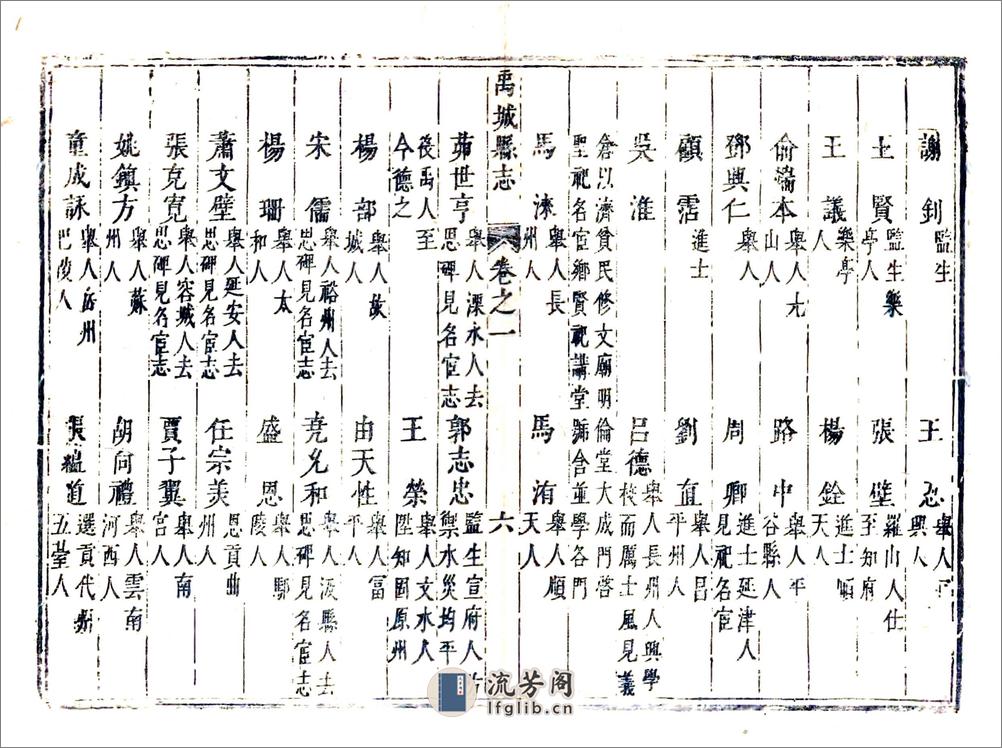 謝釗 監生 王 舉人 興人
賢 監生樂亭人 張璧 羅山人仕至知府
王議 樂亭人 楊銓 進士順天人
俞 本 舉人 山人 路中 舉人平谷縣人
鄧興仁 舉人 周卿 進士延津人見祀名宦
顧霑 進士 劉直 舉人昌平州人
吳淮 呂德 舉人長州人興學校而厲士風見義
倉以濟貧民修文廟明倫堂大成門啓
聖祀名宦鄉賢祀講堂號舍並學各門
馬涷 舉人長州人 馬淯 舉人順天人
禹城縣志 卷之一 六
茹世亨 舉人溧水人去思碑見名宦志 郭志忠 監生宣府人 禦水災均平
後禹人至今德之 王榮 舉人文水人陞知固原州
楊部 舉人故城人 由天性 舉人富平人
宋儒 舉人裕州人去思碑見名宦志 堯允和 舉人汲縣人去思碑見名宦志
楊珊 舉人太和人 盛恩 舉人鄢陵人
蕭文璧 舉人延安人去思碑見名宦志 任宗美 恩貢曲州人
張克寬 舉人容城人去思碑見名宦志 賈子翼 舉人南宮人
姚鎮方 舉人蘇州人 胡向禮 舉人雲南河西人
童成詠 舉人岳州巴陵人 張蘊道 選貢代 五臺人
流芳阁
lfglib.cn